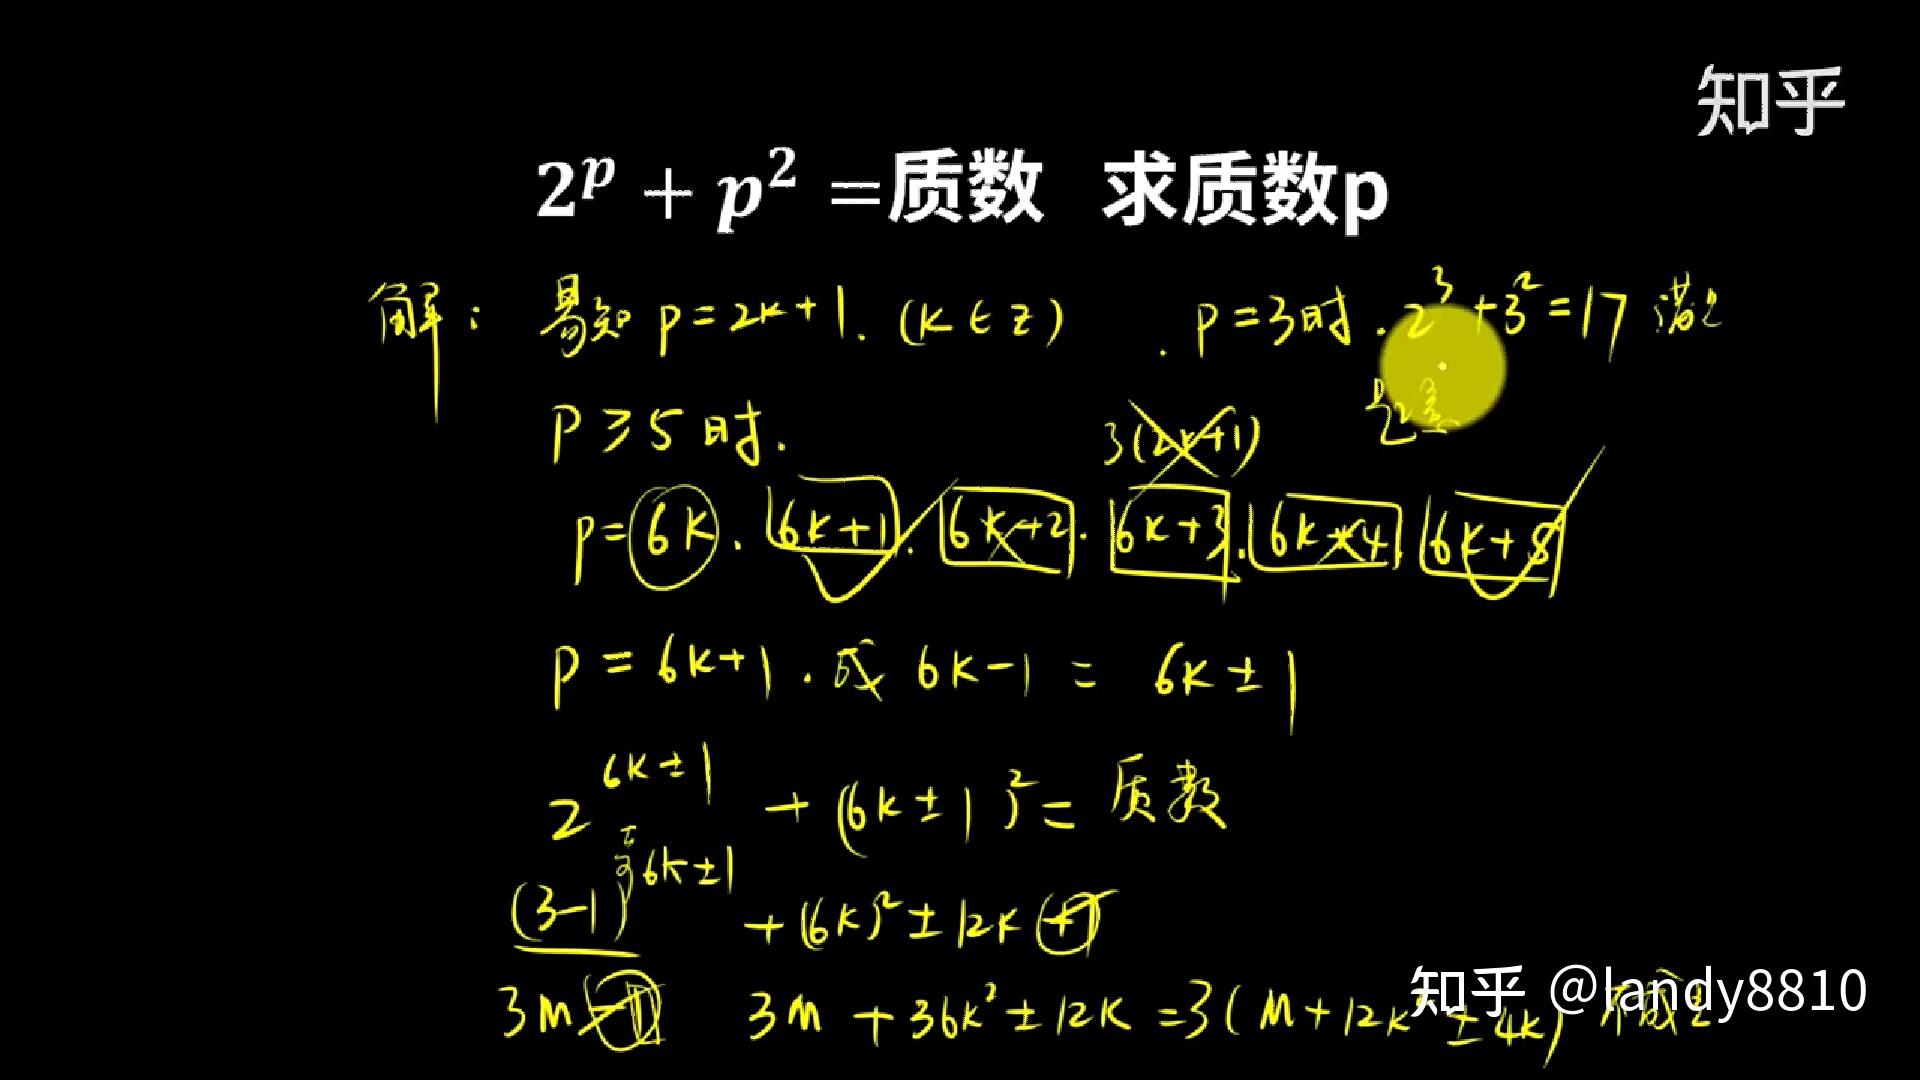 知乎
2^p + p^2 =质数 求质数p
解: 易知 p=2k+1. (k∈z) . p=3时. 2^3+3^2=17 满足
p≥5时. 3(2k+1)
p=6k. 6k+1. 6k+2. 6k+3. 6k+4 6k+5
p = 6k+1. 或 6k-1 = 6k±1
2^{6k±1} + (6k±1)^2 = 质数
(3-1)^{6k±1} + (6k)^2 ± 12k +1
3m-1 3m + 36k^2 ± 12k =3(m+12k^2 ± 4k) 不满足
知乎 @landy8810